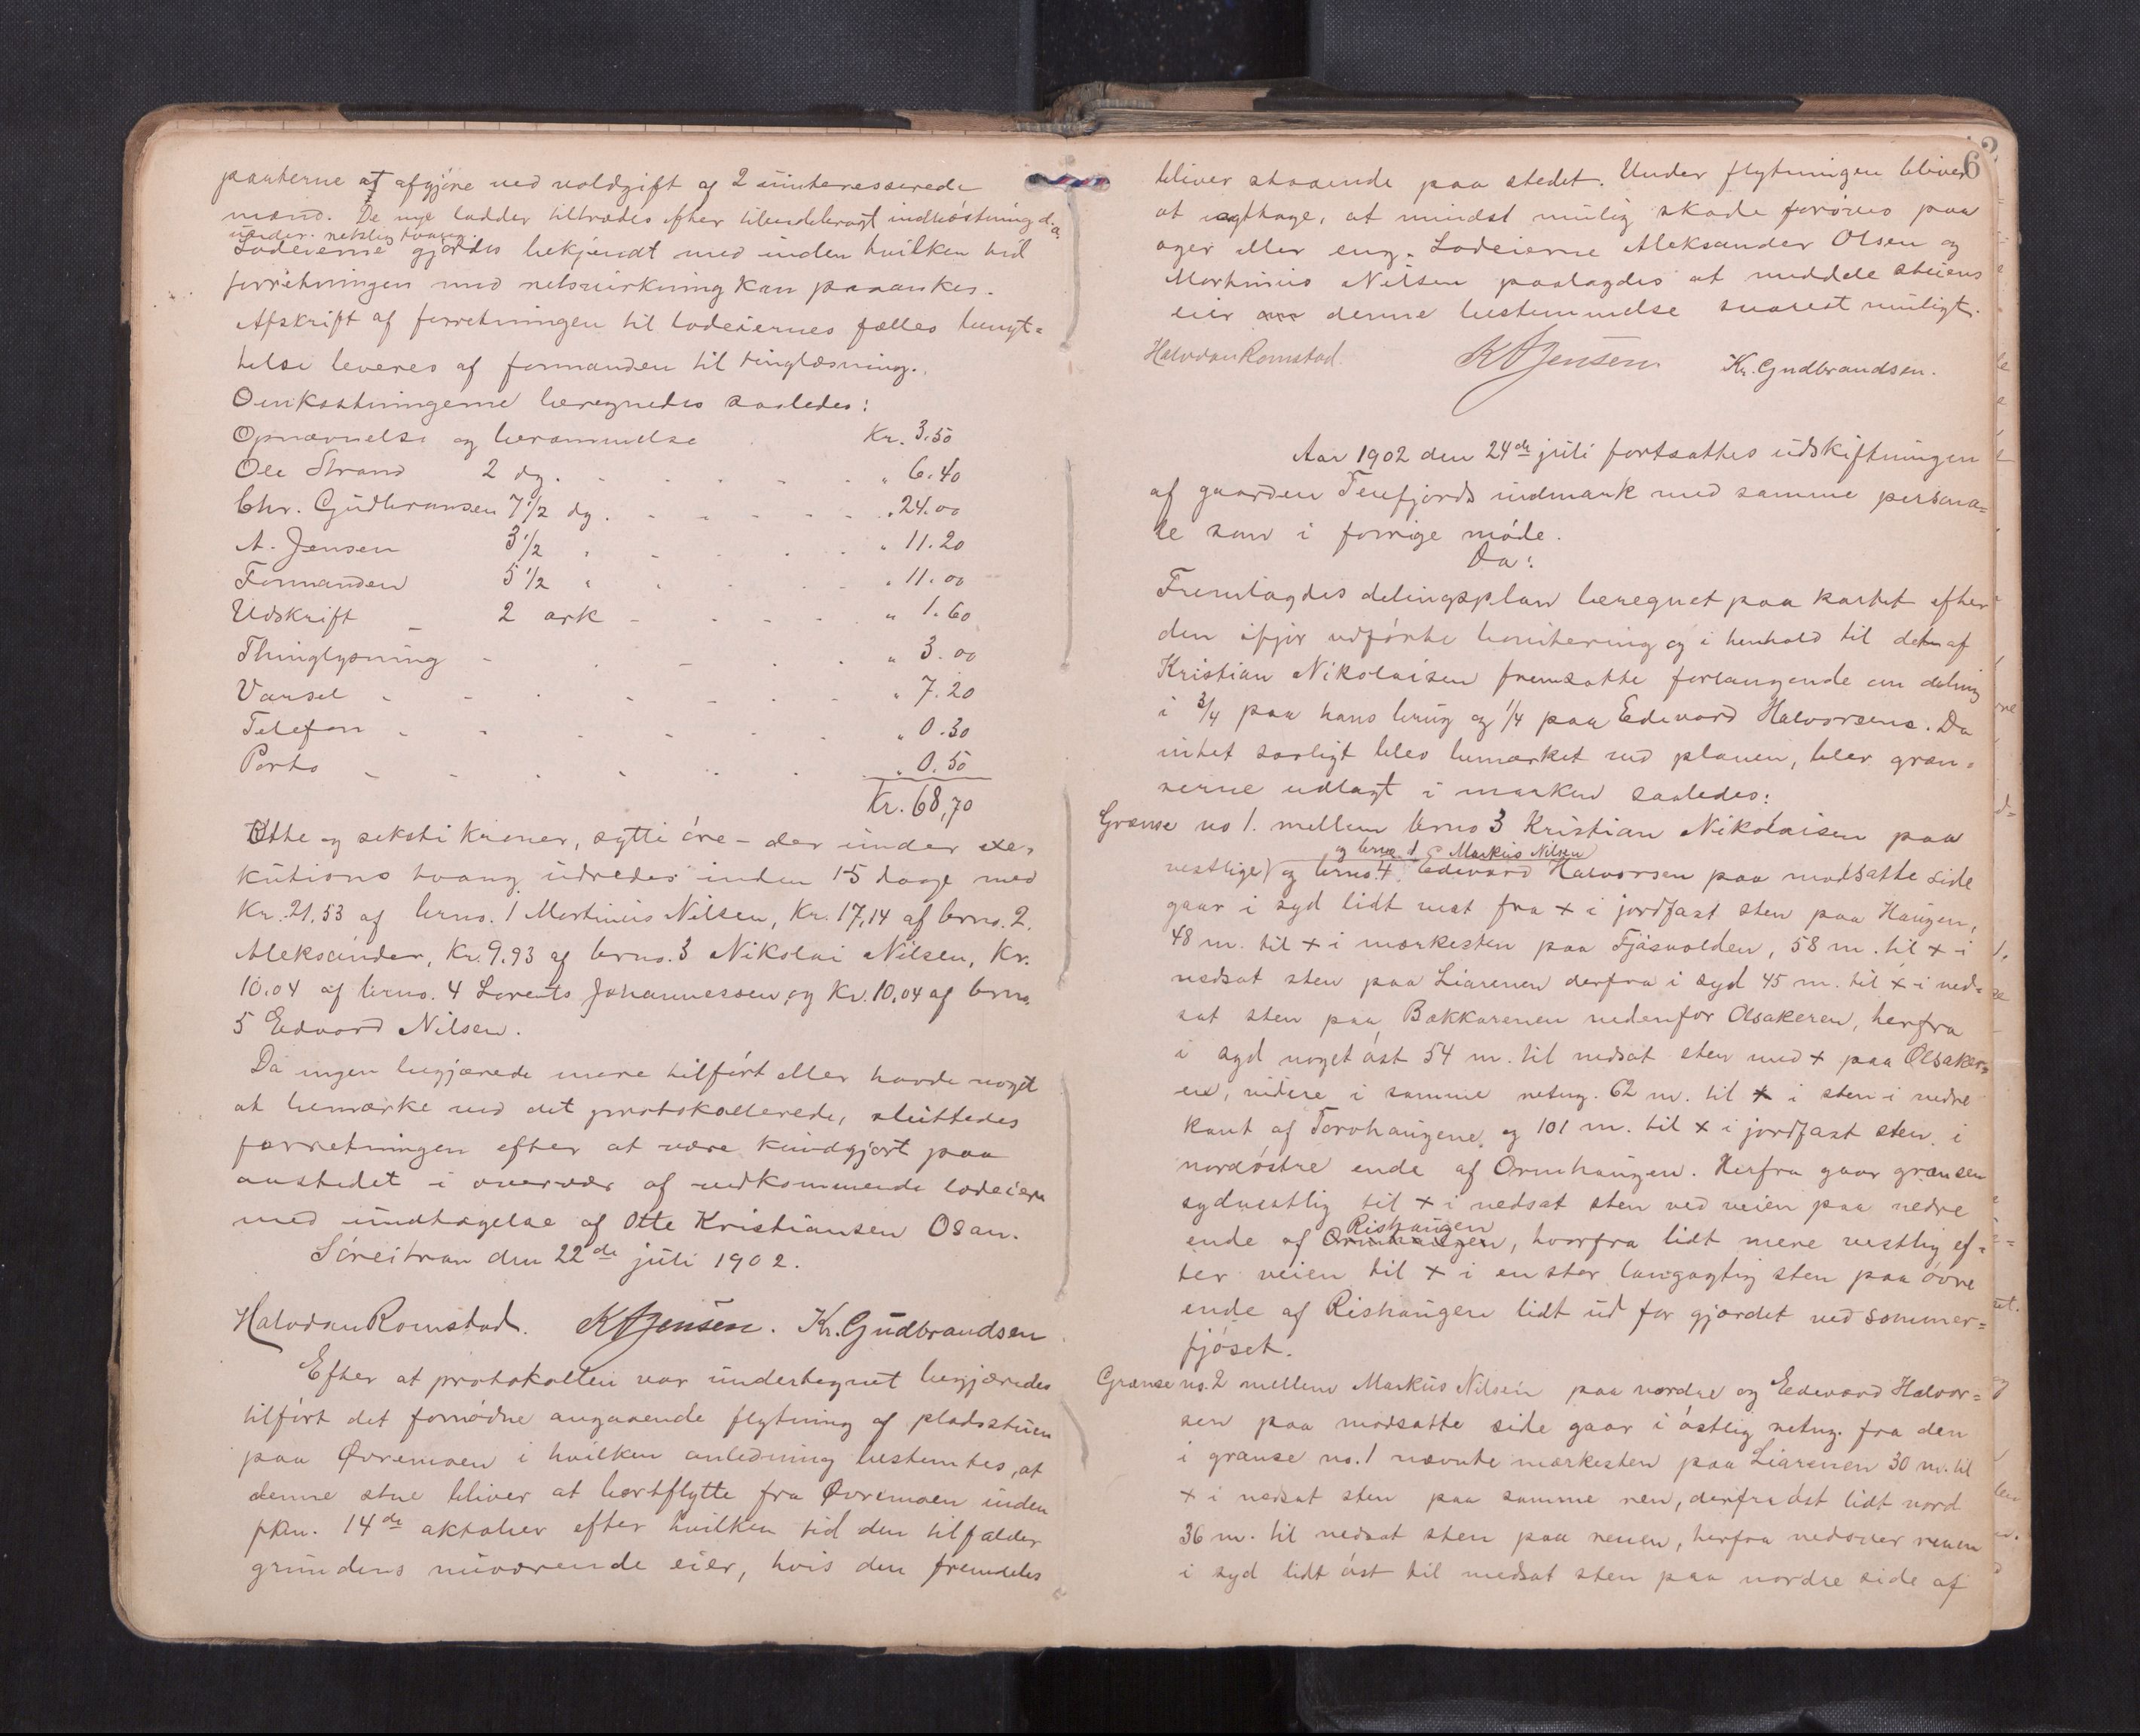 parterne at afgjöre ved voldgift af 2 uinteresserede
mænd. De nye lodder tiltrædes efter tilendebragt indhöstning d. a.
under retslig tvang.
Lodeierne gjordes bekjendt med inden hvilken tid
forretningen med retsvirkning kan paaankes.
Afskrift af forretningen til lodeiernes fælles benyt=
telse leveres af formanden til tinglæsning.
Omkostningerne beregnedes saaledes:
Opnævnelse og berammelse Kr. 3.50
Ole Strand 2 dg. " 6.40
Chr. Gudbransen 7 1/2 dg. " 24.00
A. Jensen 3 1/2 " " 11.20
Formanden 5 1/2 " " 11.00
Udskrift 2 ark " 1.60
Thinglysning " 3.00
Varsel " 7.20
Telefon " 0.30
Porto " 0.50
Kr. 68,70
Otte og seksti kroner, sytti öre - der under exe=
kutions tvang udredes inden 15 dage med
Kr. 21.53 af brno. 1 Martinus Nilsen, Kr. 17,14 af brno. 2.
Aleksander, Kr. 9.93 af brno. 3 Nikolai Nilsen, Kr.
10.04 af brno. 4 Lorents Johannessen, og Kr. 10,04 af brno
5 Edvard Nilsen.
Da ingen begjærede mere tilfört eller havde noget
at bemærke ved det protokollerede, sluttedes
forretningen efter at være kundgjort paa
aastedet i overvær af vedkommende lodeiere
med undtagelse af Otte Kristiansen Osan.
Söreitran den 22de juli 1902.
Halvdan Romstad. K A Jensen. Kr. Gudbrandsen
Efter at protokollen var undertegnet begjæredes
tilfört det fornödne angaaende flytning af pladsstuen
paa Øvremoen i hvilken anledning bestemtes, at
denne stue bliver at bortflytte fra Øvremoen inden
pkm. 14de oktober efter hvilken tid den tilfalder
grundens nuværende eier, hvis den fremdeles
6
bliver staaende paa stedet. Under flytningen bliver
at iagttage, at mindst mulig skade foröves paa
ager eller eng. Lodeierne Aleksander Olsen og
Martinius Nilsen paalagdes at meddele stuens
eier denne bestemmelse snarest muligt.
Halvdan Romstad. K A Jensen. Kr. Gudbrandsen.
Aar 1902 den 24de juli fortsattes udskiftningen
af gaarden Tenfjords indmark med samme persona=
le som i forrige möde.
Da:
Fremlagdes delingsplan beregnet paa kartet efter
den ifjor udförte bonitering og i henhold til den af
Kristian Nikolaisen fremsatte forlangende om deling
i 3/4 paa hans brug og 1/4 paa Edevard Halvorsens. Da
intet særligt blev bemærket ved planen, blev græn=
serne udlagt i marken saaledes:
Grænse no 1. mellem brno 3 Kristian Nikolaisen paa
og brno. 1 Markus Nilsen
vestlige) og brno. 4. Edevard Halvorsen paa modsatte side
gaar i syd lidt vest fra x i jordfast sten paa Haugen,
48 m. til x i mærkesten paa Fjösvolden, 58 m. til x i
nedsat sten paa Liarenen derfra i syd 45 m. til x i ned=
sat sten paa Bakkarenen nedenfor Olsakeren, herfra
i syd noget öst 54 m. til nedsat sten med x paa Olsaker=
en, videre i samme retng. 62 m. til x i sten i nedre
kant af Torvhaugene, og 101 m. til x i jordfast sten i
nordöstre ende af Ormhaugen. Herfra gaar grænsen
sydvestlig til x i nedsat sten ved veien paa nedre
Rishaugen
ende af Ormhaugen, hvorfra lidt mere vestlig ef=
ter veien til x i en stor langagtig sten paa övre
ende af Rishaugen lidt ud for gjærdet ved sommer=
fjöset.
Grænse no. 2 mellem Markus Nilsen paa nordre og Edevard Halvor=
sen paa modsatte side gaar i östlig retng. fra den
i grænse no. 1 nævnte mærkesten paa Liarenen 30 m. til
x i nedsat sten paa samme ren, derfra öst lidt nord
36 m. til nedsat sten paa renen, herfra nedover renen
i syd lidt öst til nedsat sten paa nordre side af